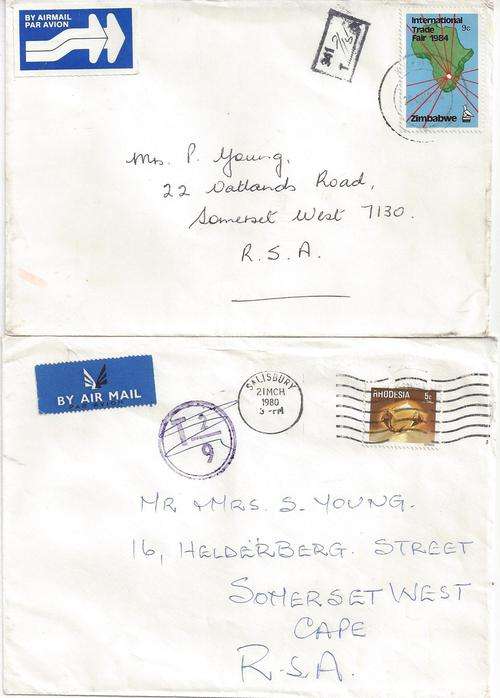 BY AIRMAIL
PAR AVION
International
Trade
Fair 1984
9c
Zimbabwe
Mrs. P. Young,
22 Oatlands Road,
Somerset West 7130.
R.S.A.
BY AIR MAIL
PAR AVION
SALISBURY
21 MCH
1980
3-PM
T 2
9
RHODESIA
5c
MR & MRS. S. YOUNG.
16, HELDERBERG. STREET
SOMERSET WEST
CAPE
R.S.A.